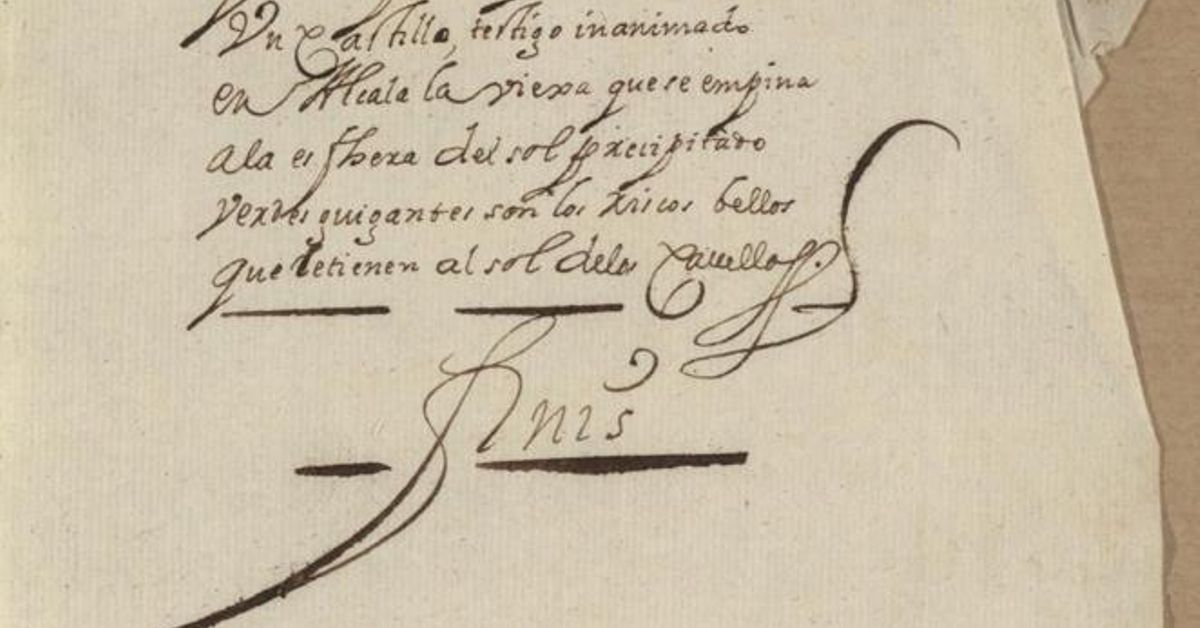 Un Castillo, testigo inanimado
en Alcala la viexa que se empina
ala esfhera del sol precipitado
verdes guigantes son los riscos bellos
que detienen al sol delos Cavellos.
Finis